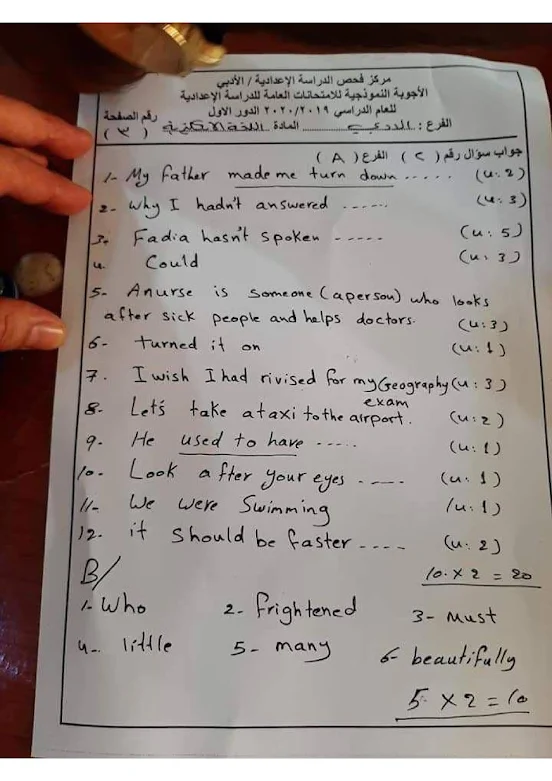 مركز فحص الدراسة الإعدادية / الأدبي
الأجوبة النموذجية للامتحانات العامة للدراسة الإعدادية
للعام الدراسي ٢٠٢٠/٢٠١٩ الدور الاول
الفرع : المادة اللغة الانكليزية رقم الصفحة ( ٣ )
جواب سؤال رقم ( ) الفرع ( A )
1- My father made me turn down ..... (u: 2)
2- Why I hadn't answered ----- (u: 3)
3- Fadia hasn't spoken ----- (u: 5)
4. Could (u: 3)
5- A nurse is someone (aperson) who looks
after sick people and helps doctors. (u: 3)
6- turned it on (u: 1)
7. I wish I had rivised for my Geography (u: 3)
exam
8- Let's take a taxi to the airport. (u: 2)
9- He used to have ----- (u: 1)
10- Look after your eyes ----- (u: 1)
11- We were Swimming (u: 1)
12- it should be faster ---- (u: 2)
10 × 2 = 20
B/
1- Who 2- frightened 3- Must
4- little 5- many 6- beautifully
5 × 2 = 10